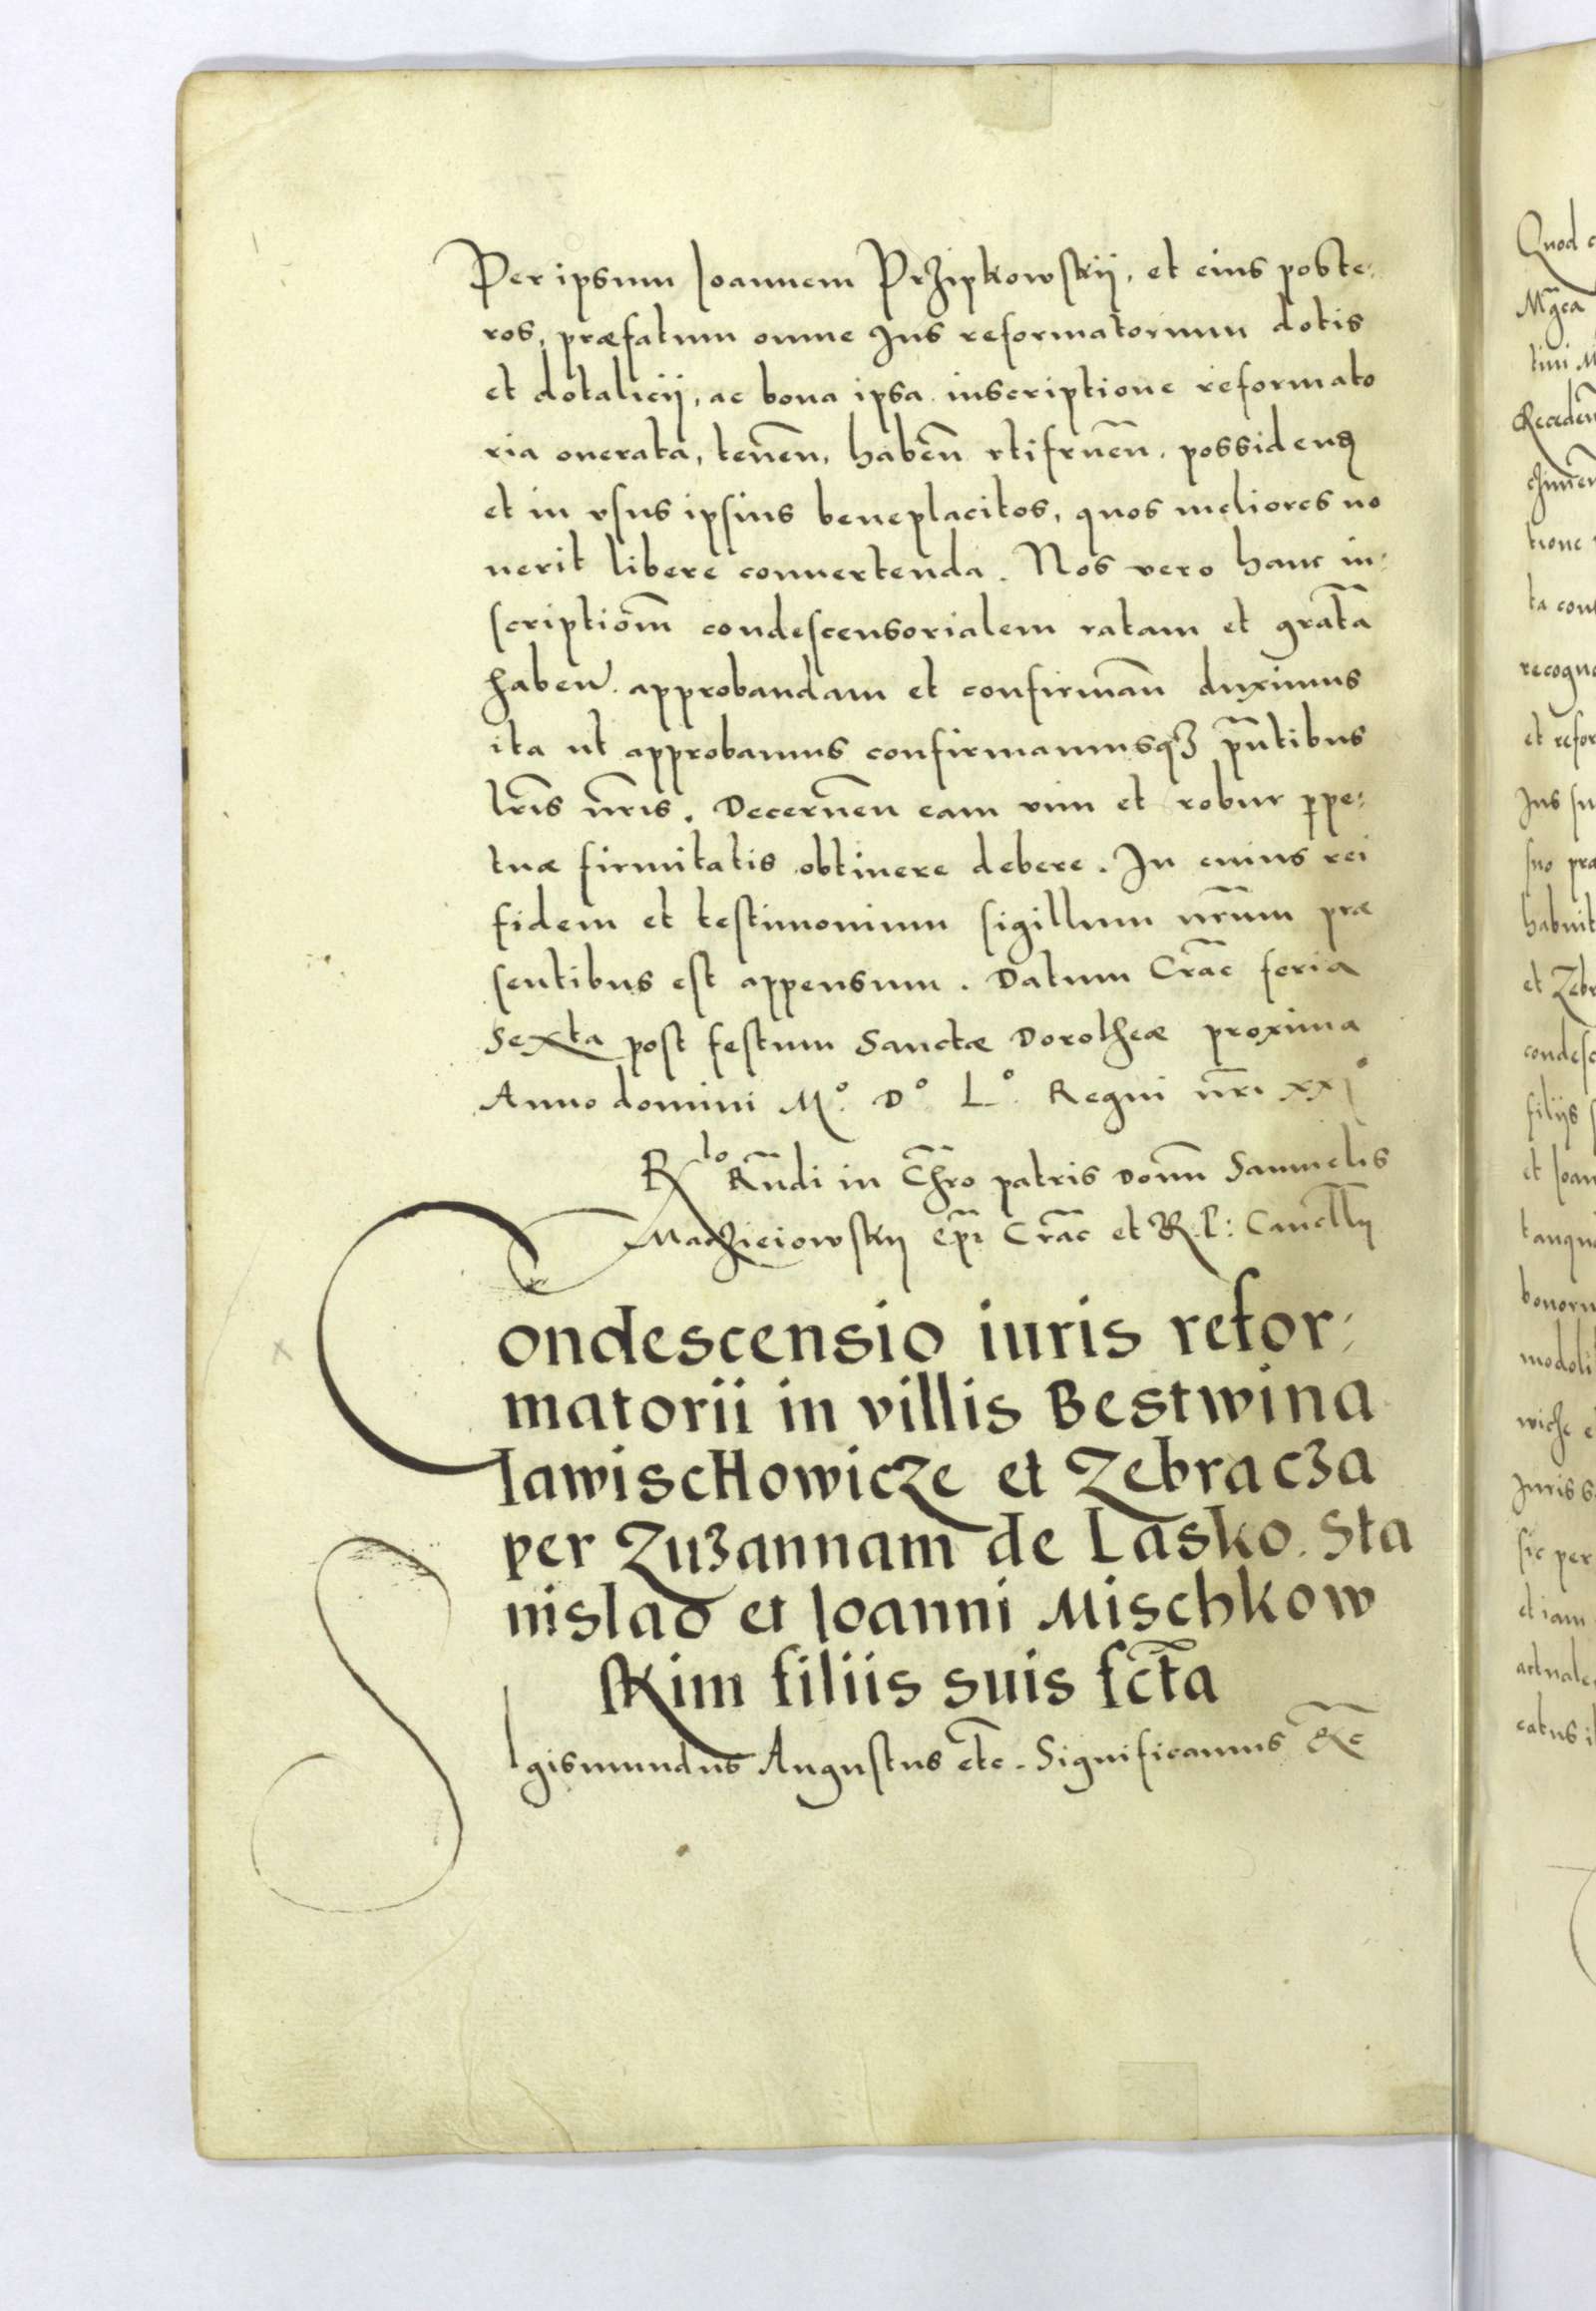 Per ipsum Ioannem Przipkowskij, et eius poste:
ros, præfatum omne Ius reformatorium dotis
et dotalicij, ac bona ipsa inscriptione reformato
ria onerata, teneñ, habeñ vtifrueñ. possidenḍ
et in vsus ipsius beneplacitos, quos meliores no
uerit libere conuertenda. Nos vero hanc in:
scriptiōm condescensorialem ratam et grat̄a
haben̄. approbandam et confirmañ duximus
ita ut approbamus confirmamusqꝫ p̄ntibus
l̄ris n̄ris. Decerneñ eam vim et robur ꝑpe:
tuæ firmitatis obtinere debere. In cuius rei
fidem et testimonium sigillum n̄rum præ
sentibus est appensum. Datum Crac̄ feria
Sexta post festum Sanctæ Dorotheæ proxima
Anno domini M° D° L° Regni n̄ri xxj°
R^lo R̄ndi in Chr̄o patris Domñ Samuelis
Maczieiowskij ep̄i Crac̄ et R. P: Canc̄llij
Condescensio iuris refor:
matorii in villis Bestwina
Iawischowicze et Zebraczꝫa
per Zuzannam de Lasko. Sta
nislao et Ioanni Mischkow
skim filiis suis fct̄a
Sigismundus Augustus etc̄. Significamus &c̄
Quod
M̄gca
tini
recogn
et refor
Ius su
suo præ
habuit
et Zebr
condesc
filijs
et Ioan
tanqu
bonoru
Iuris s
sic per
etiam
actuale